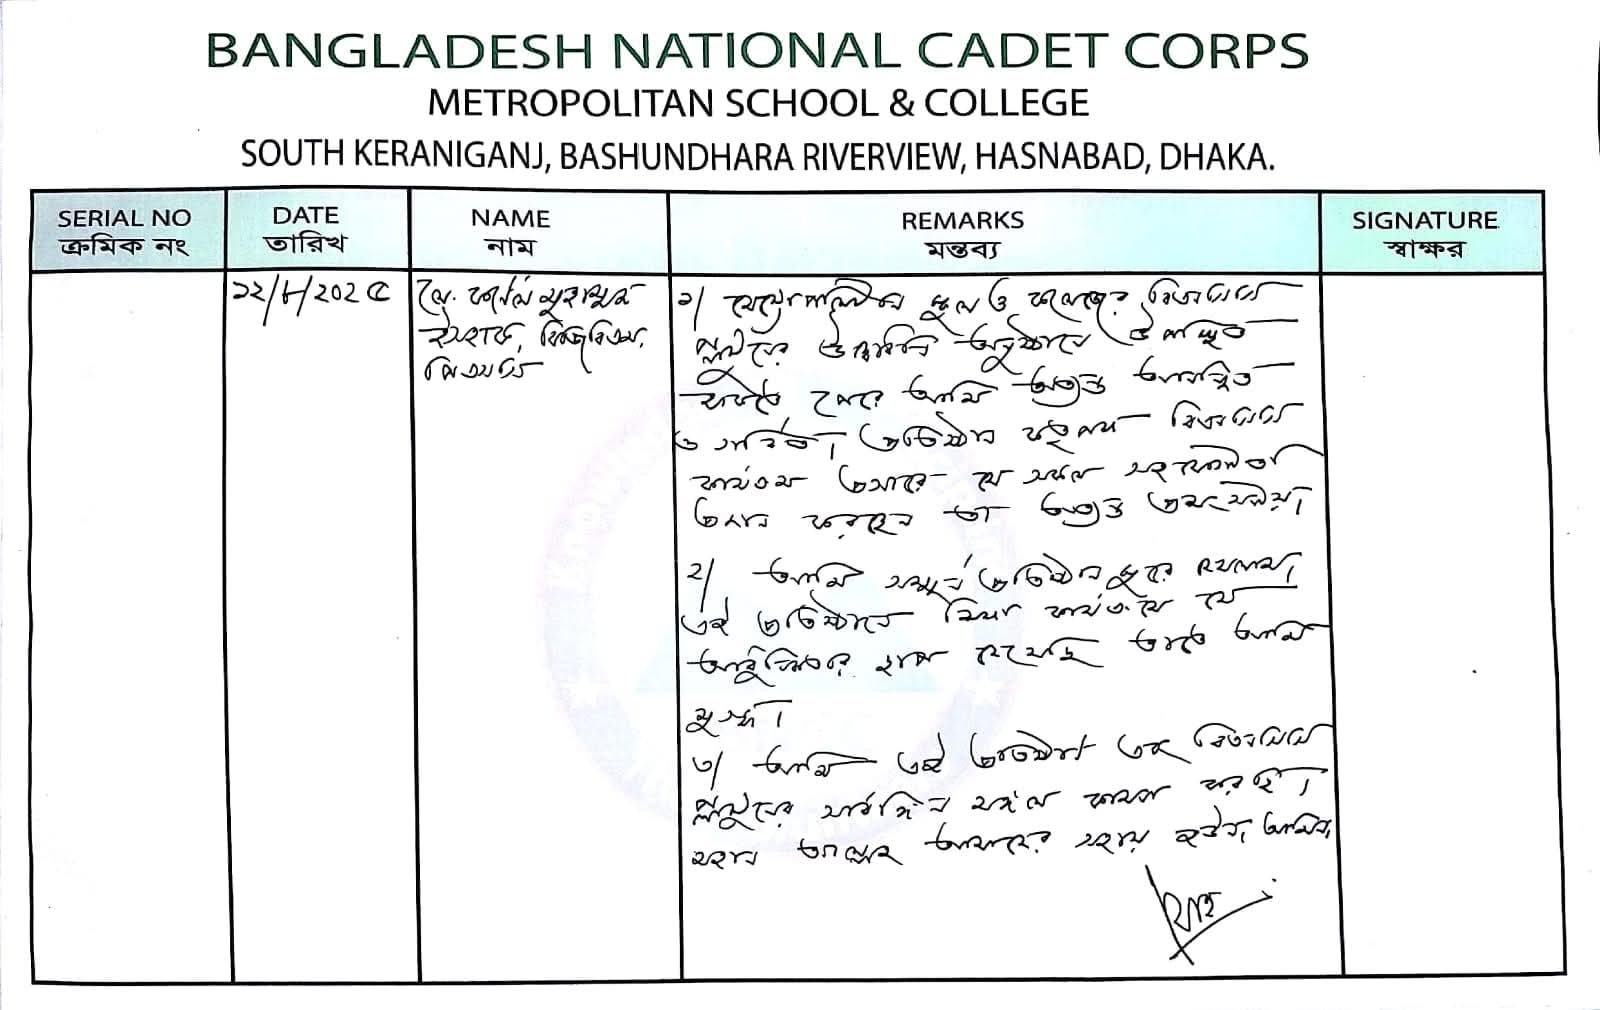 BANGLADESH NATIONAL CADET CORPS
METROPOLITAN SCHOOL & COLLEGE
SOUTH KERANIGANJ, BASHUNDHARA RIVERVIEW, HASNABAD, DHAKA.
SERIAL NO
ক্রমিক নং
DATE
তারিখ
NAME
নাম
REMARKS
মন্তব্য
SIGNATURE
স্বাক্ষর
১২/৮/২০২৫
লে. কর্নেল মুহাম্মদ
পিএসসি
১/ মেট্রোপলিটন স্কুল ও কলেজের বিএনসিসি
প্লাটুনের অনুষ্ঠানে উপস্থিত
থাকতে পেরে আমি অত্যন্ত আনন্দিত
ও গর্বিত। প্রতিষ্ঠান কর্তৃপক্ষ বিএনসিসি
কার্যক্রম প্রসারে যে সকল সহযোগিতা
প্রদান করছেন তা অত্যন্ত প্রশংসনীয়।
২/ আমি সম্পূর্ণ প্রতিষ্ঠান ঘুরে দেখলাম।
এই প্রতিষ্ঠানে শিক্ষা কার্যক্রমে যে
আধুনিকতার ছাপ দেখেছি তাতে আমি
মুগ্ধ।
৩/ আমি এই প্রতিষ্ঠান এবং বিএনসিসি
প্লাটুনের সার্বিক মঙ্গল কামনা করছি।
মহান আল্লাহ আমাদের সহায় হউন, আমিন।